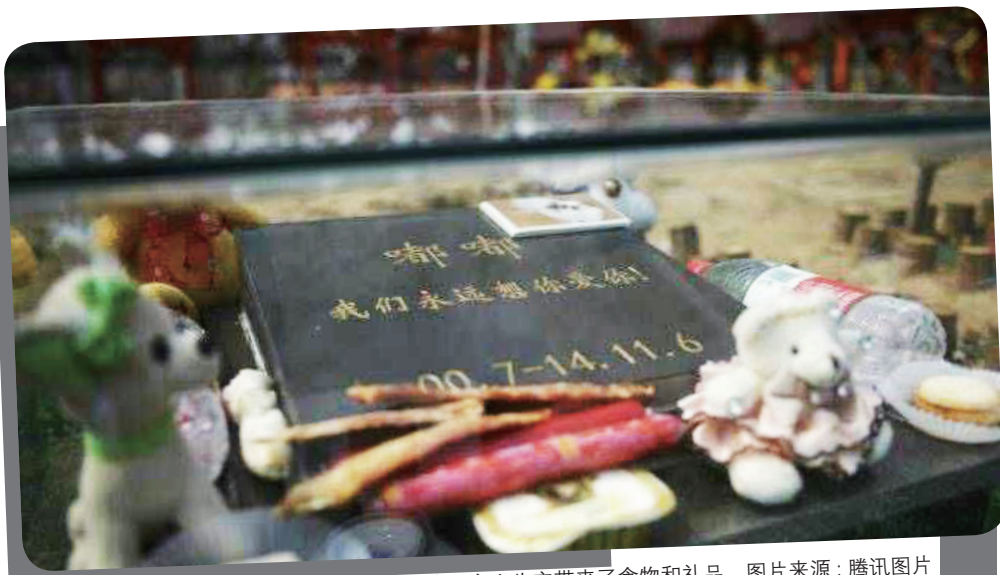 嘟嘟
我们永远想你爱你!
00.7-14.11.6
带来了食物和礼品 图片来源：腾讯图片